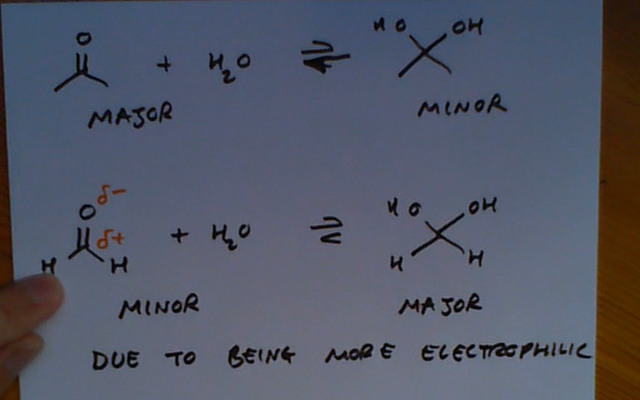 O HO OH
+ H2O ⇌
MAJOR MINOR
δ-
O HO OH
δ+ + H2O ⇌
H H H H
MINOR MAJOR
DUE TO BEING MORE ELECTROPHILIC